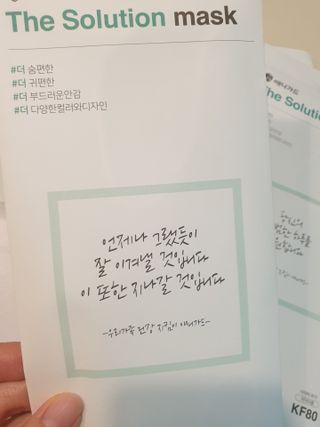 The Solution mask
#더 숨편한
#더 귀편한
#더 부드러운안감
#더 다양한컬러와디자인
언제나 그랬듯이
잘 이겨낼 것입니다
이 또한 지나갈 것입니다
-우리가족 건강 지킴이 애니가드-
애니가드
The Solution
KF80